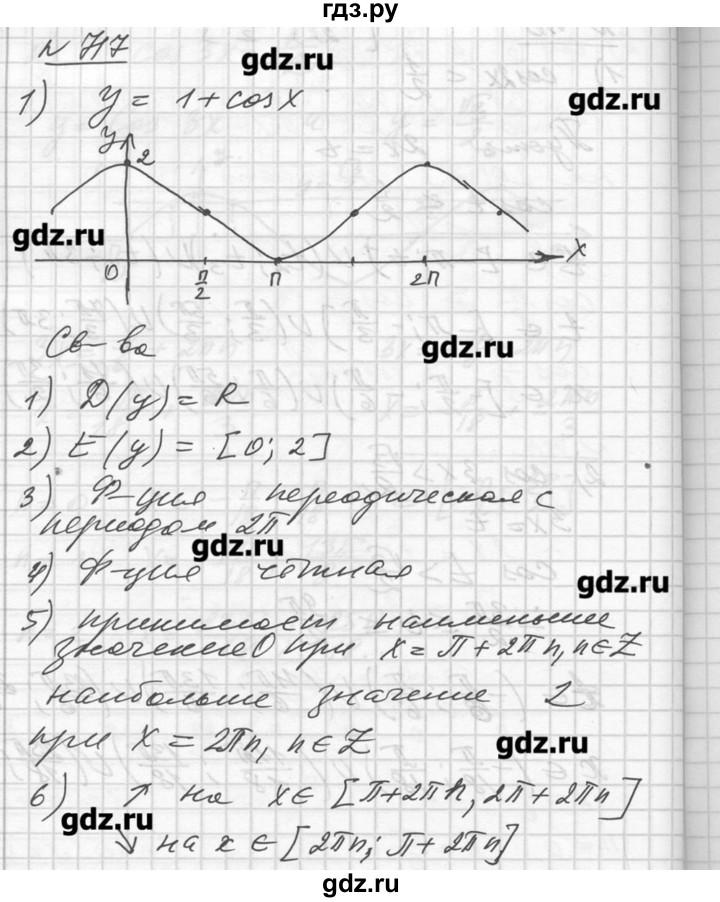 гдз.ру
№ 717
gdz.ru
1) y = 1 + cos x
gdz.ru
y
2
gdz.ru
x
0 π/2 π 2π
Св-ва
gdz.ru
1) D(y) = R
2) E(y) = [0; 2]
3) Ф-ция периодическая с
периодом 2π
gdz.ru
4) Ф-ция чётная
gdz.ru
5) принимает наименьшее
значение 0 при x = π + 2πn, n ∈ Z
наибольшее значение 2
при x = 2πn, n ∈ Z
gdz.ru
6) ↗ на x ∈ [π+2πn, 2π+2πn]
gdz.ru
↘ на x ∈ [2πn; π+2πn]
gdz.ru